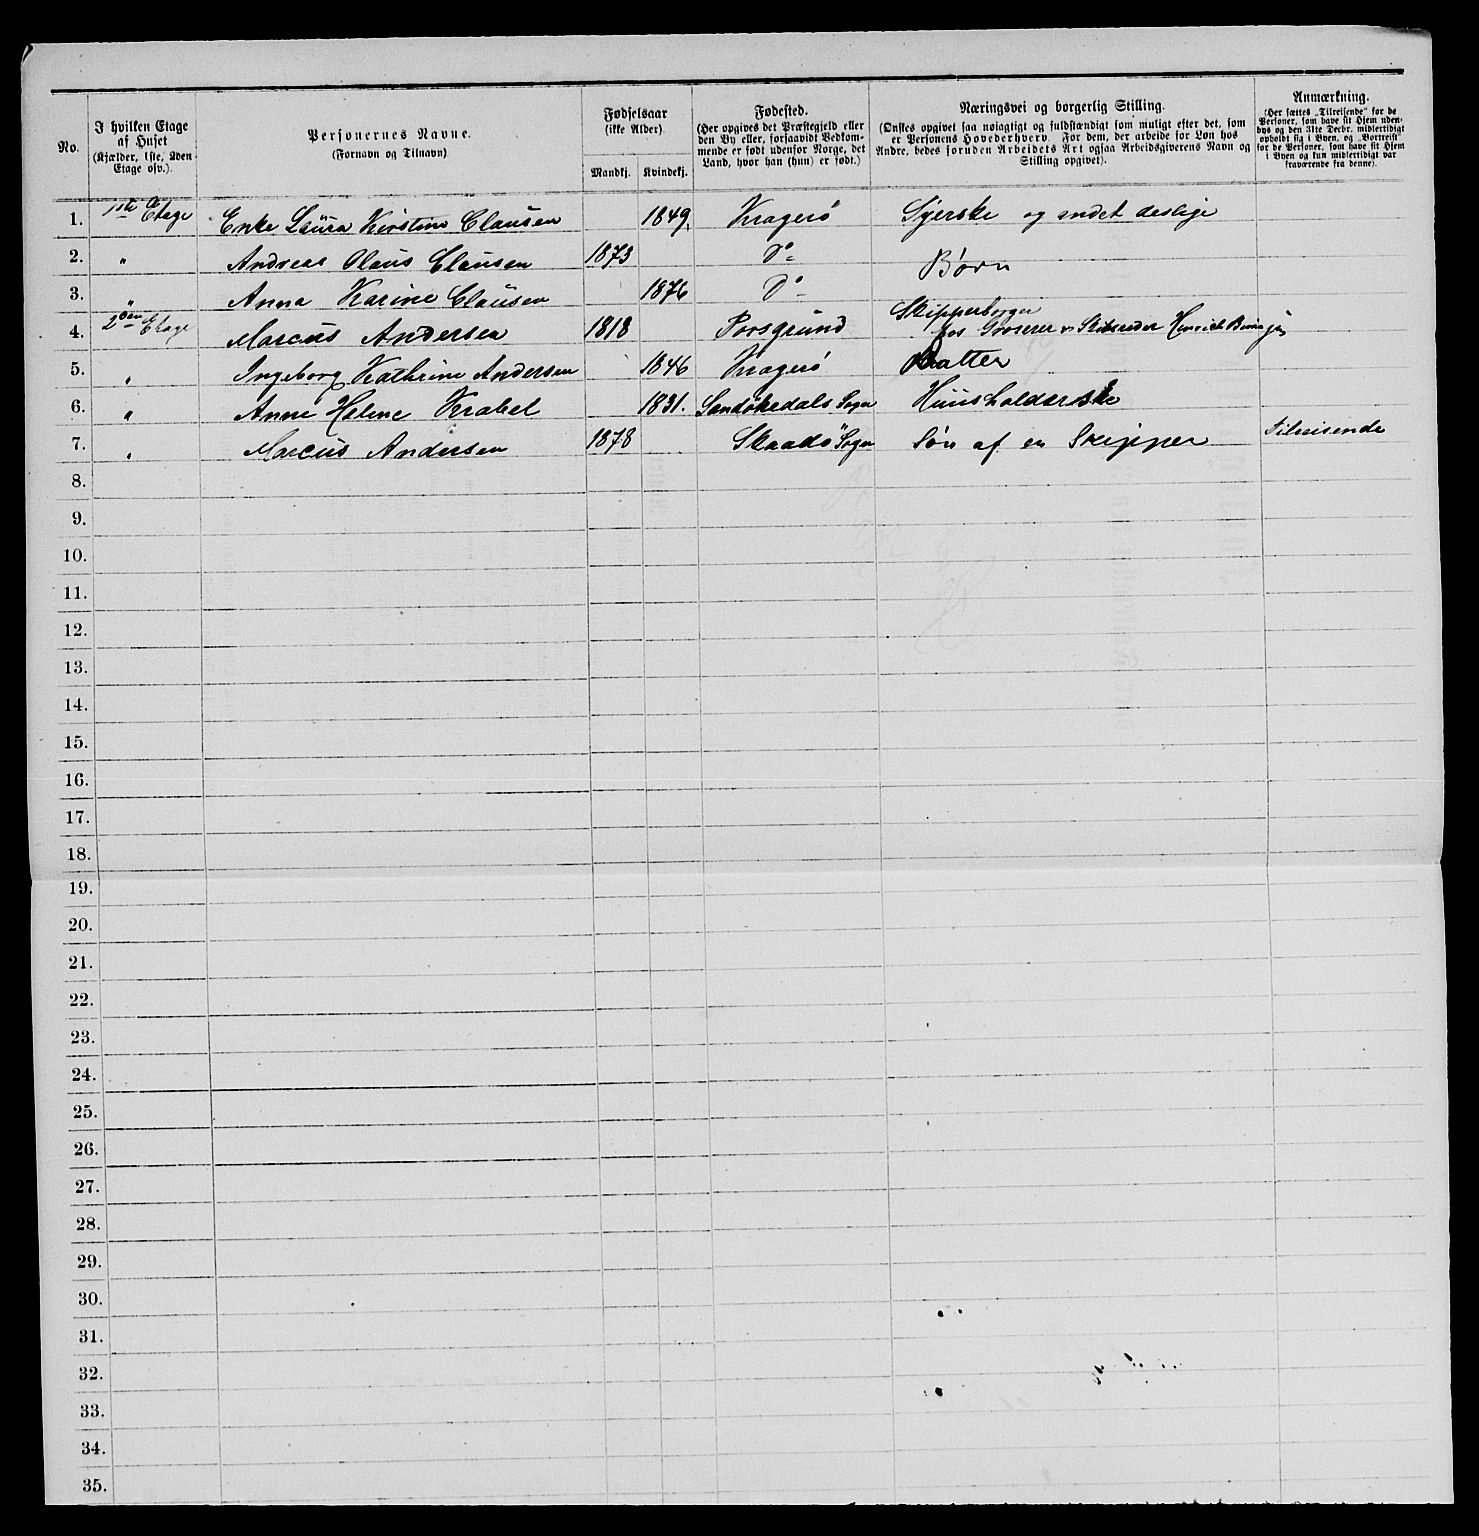 No.
I hvilken Etage
af Huset
(Kjælder, 1ste, 2den
Etage osv.).
Personernes Navne.
(Fornavn og Tilnavn)
Fødselsaar
(ikke Alder).
Mandkj. Kvindekj.
Fødested.
(Her opgives det Præstegjeld eller
den By eller, forsaavidt Vedkom-
mende er født udenfor Norge, det
Land, hvor han (hun) er født.)
Næringsvei og borgerlig Stilling.
(Ønskes opgivet saa nøiagtigt og fuldstændigt som muligt efter det, som
er Personens Hovederhverv. For dem, der arbeide for Løn hos
Andre, bedes foruden Arbeidets Art ogsaa Arbeidsgiverens Navn og
Stilling opgivet).
Anmærkning.
(Her sættes „Tilreisende“ for de
Personer, som have sit Hjem uden-
bys og den 31te Decbr. midlertidigt
opholdt sig i Byen, og „Bortreist“
for de Personer, som have sit Hjem
i Byen og kun midlertidigt var
fraværende fra denne).
1. 1ste Etage Enke Laura Kirstine Clausen 1849. Kragerø Syerske og andet deslige
2. " Andreas Olaus Clausen 1873 Do Børn
3. " Anna Karine Clausen 1876 Do
4. 2den Etage Marcus Andersen 1818 Porsgrund Skipperborger
hos Grosserer Skibsreder Henrich
5. " Ingeborg Kathrine Andersen 1846 Kragerø Datter
6. " Anne Helene Krabel 1831. Sandøkedals Sogn Huusholderske
7. " Marcus Andersen 1878 Skaadø Sogn Søn af en Skipper Tilreisende
8.
9.
10.
11.
12.
13.
14.
15.
16.
17.
18.
19.
20.
21.
22.
23.
24.
25.
26.
27.
28.
29.
30.
31.
32.
33.
34.
35.